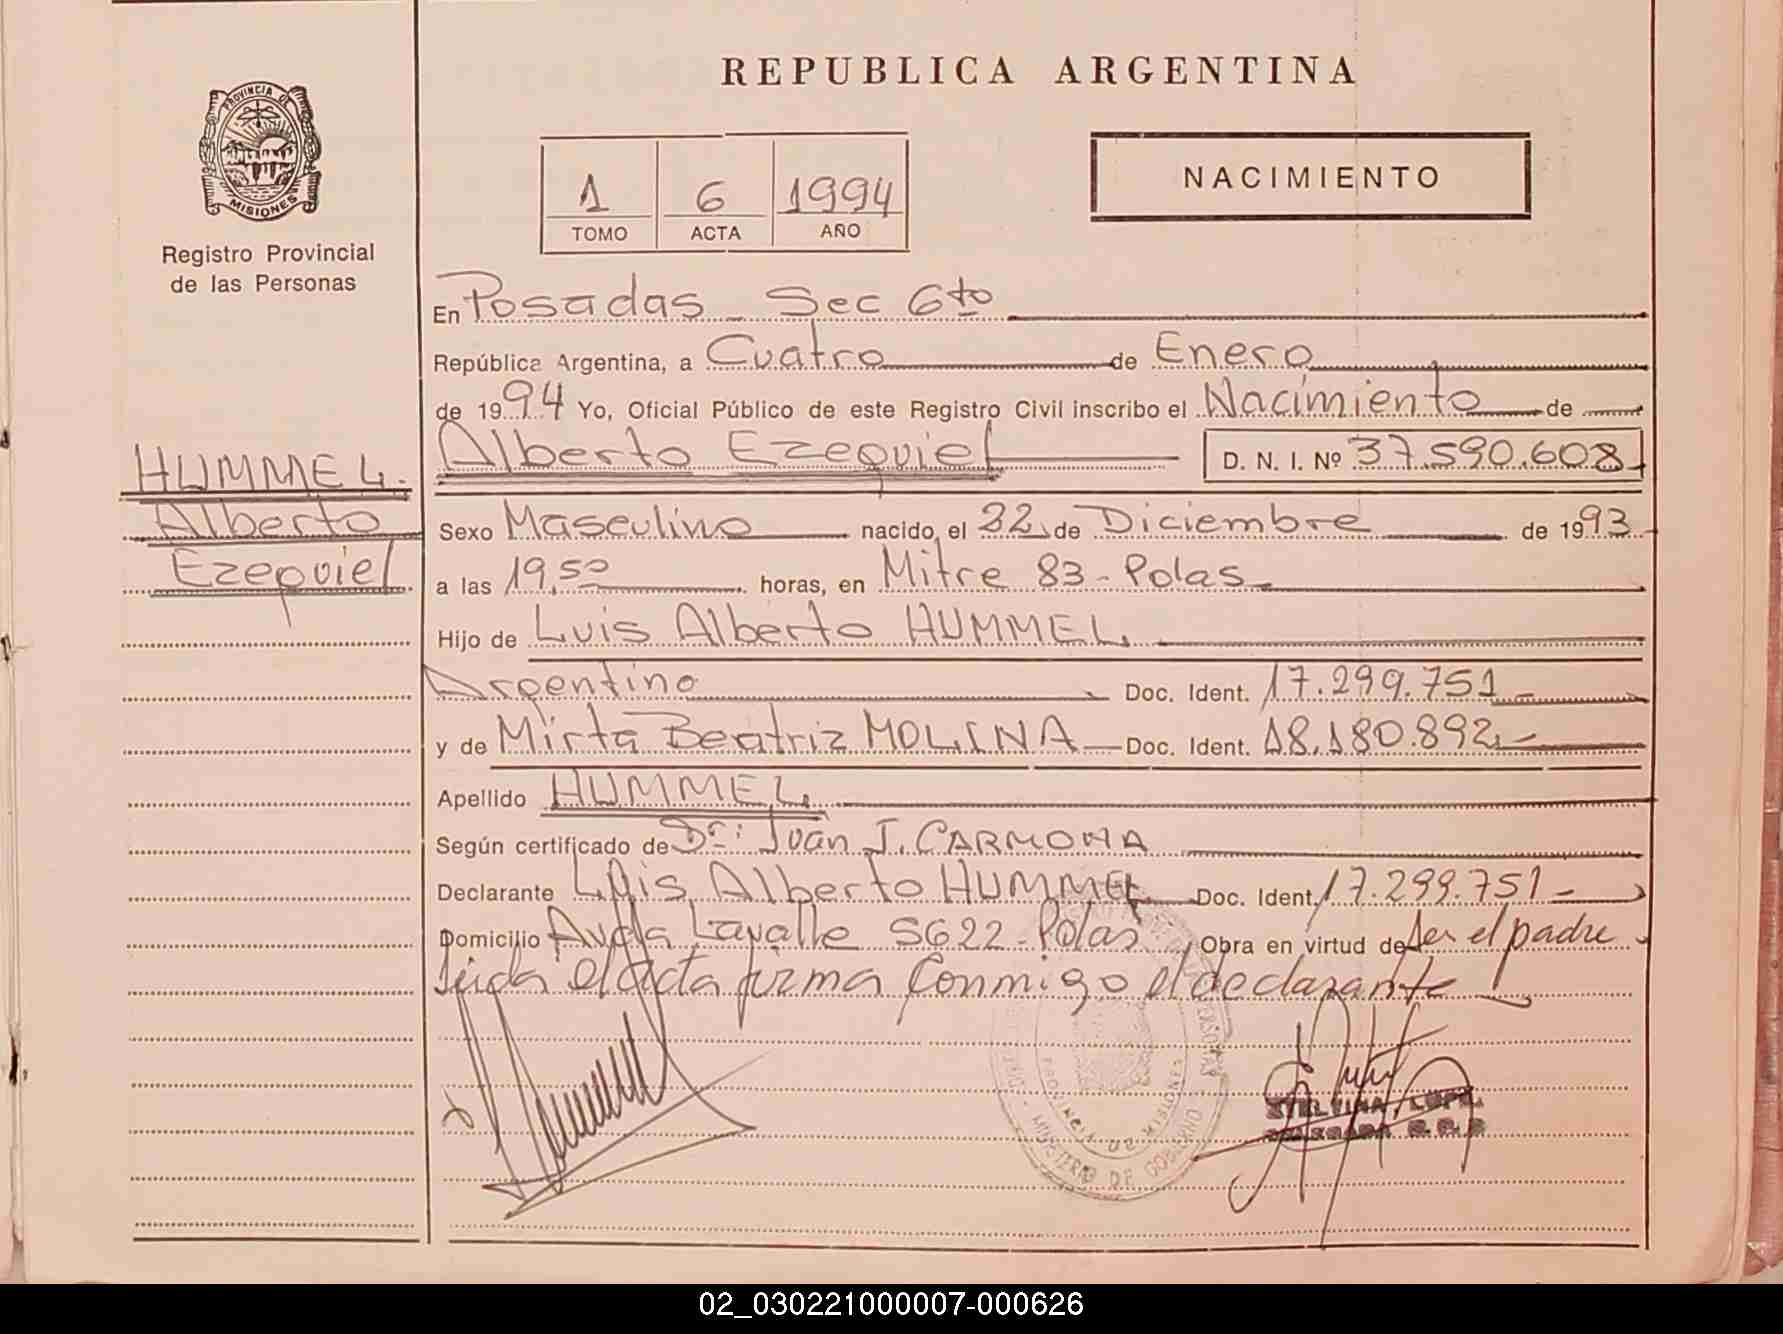 REPUBLICA ARGENTINA
PROVINCIA DE
MISIONES
Registro Provincial
de las Personas
1 6 1994
TOMO ACTA AÑO
NACIMIENTO
En Posadas Sec 6to
República Argentina, a Cuatro de Enero
de 1994 Yo, Oficial Público de este Registro Civil inscribo el Nacimiento de
Alberto Ezequiel D. N. I. Nº 37.590.608
HUMMEL
Alberto
Ezequiel
Sexo Masculino nacido el 22 de Diciembre de 1993
a las 19,50 horas, en Mitre 83 - Pdas
Hijo de Luis Alberto HUMMEL
Argentino Doc. Ident. 17.299.751
y de Mirta Beatriz MOLINA Doc. Ident. 18.180.892
Apellido HUMMEL
Según certificado de Dr. Juan J. CARMONA
Declarante Luis Alberto HUMMEL Doc. Ident. 17.299.751
Domicilio Avda Lavalle 5622 - Pdas Obra en virtud de ser el padre
Leida el acta firma conmigo el declarante
PROVINCIA DE MISIONES
MINISTERIO DE GOBIERNO
02_030221000007-000626